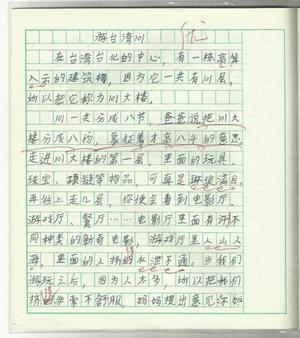 游台湾101
优
在台湾台北的中心，有一栋高耸
入云的建筑物，因为它一共有101层，
所以把它称为101大楼。
101一共分成八节，爸爸说把101大
楼分成八份，象征着才高八斗的意思。
走进101大楼的第一层，里面的玩具、
珠宝、项链等物品，可真是琳琅满目。
再往上走几层，你便会看到电影厅、
游戏厅、餐厅……电影厅里面有许多不
同种类的新奇电影，游戏厅里人山人
海，里面的人挤得水泄不通。当我们
游玩之后，因为人太多，所以把我们
挤得非常不舒服，妈妈提出意见